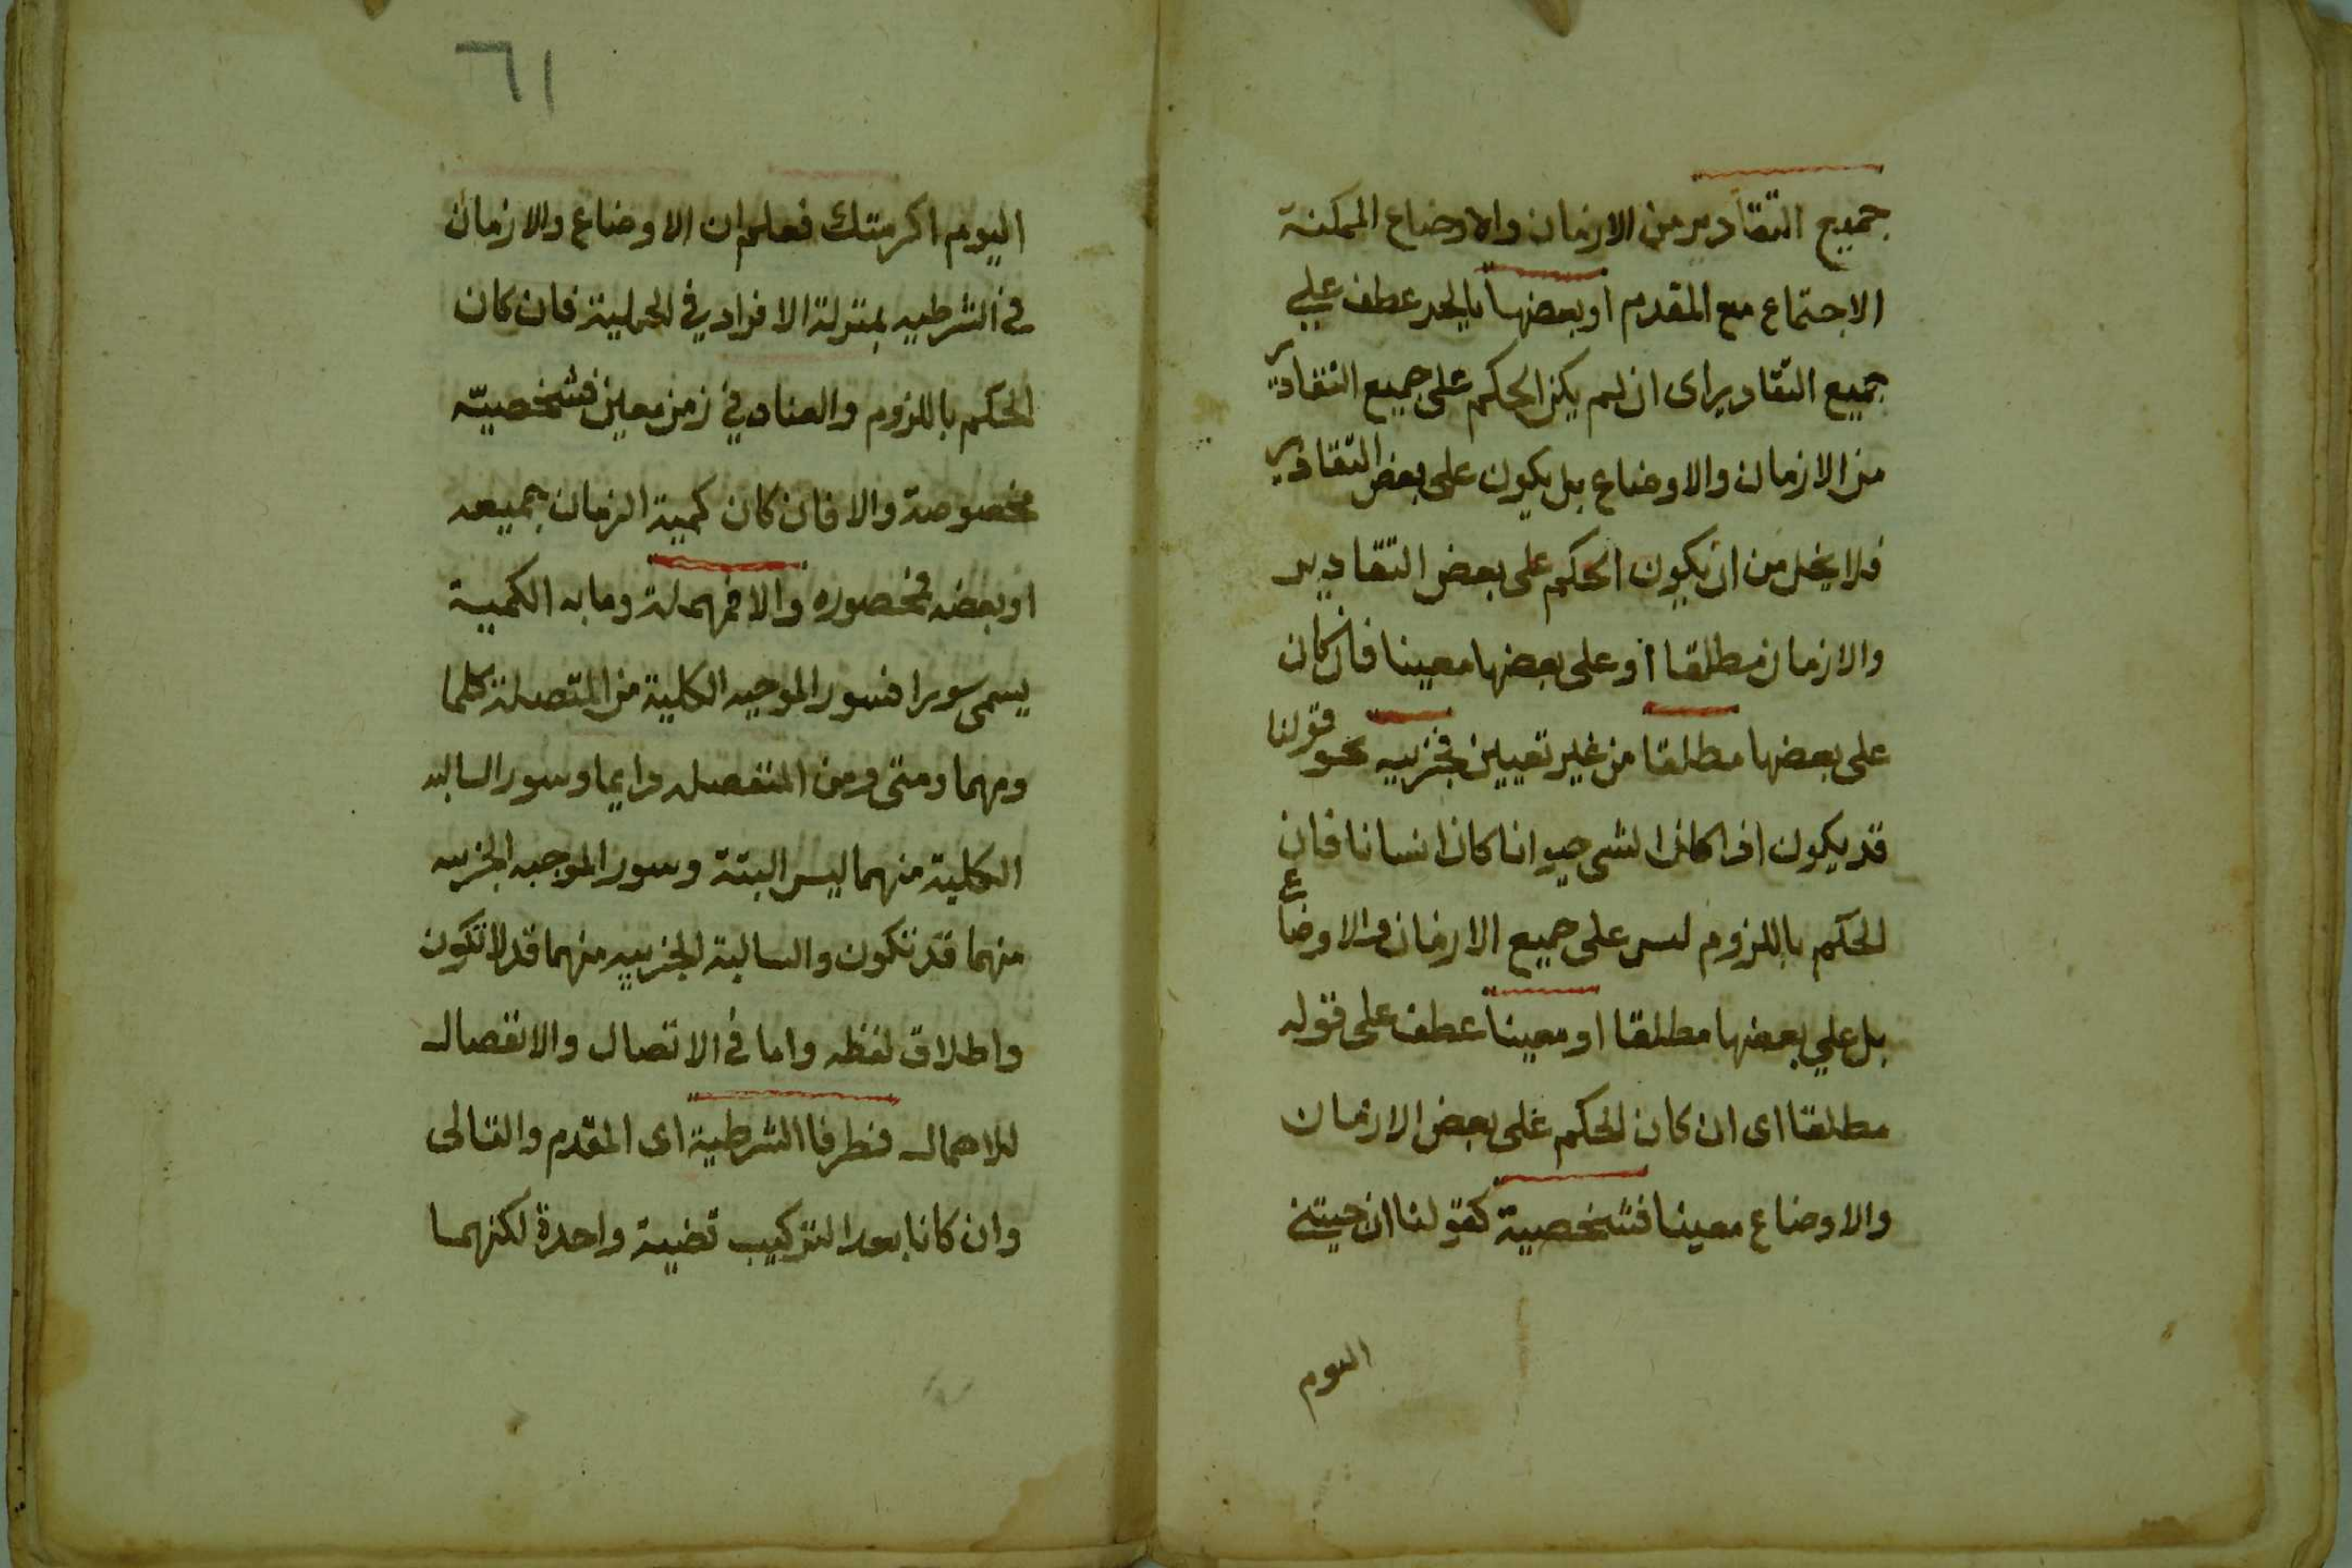 جميع التقادير من الازمان والاوضاع الممكنة
الاجتماع مع المقدم او بعضها بالجر عطف علي
جميع التقادير اى ان لم يكن الحكم على جميع التقادير
من الازمان والاوضاع بل يكون على بعض التقادير
فلا يخل من ان يكون الحكم على بعض التقادير
والازمان مطلقا أو على بعضها معينا فان كان
على بعضها مطلقا من غير تعيين فجزييه نحو قولنا
قد يكون اذا كان الشى حيوانا كان انسانا فان
الحكم باللزوم ليس على جميع الازمان والاوضاع
بل علي بعضها مطلقا او معينا عطف على قوله
مطلقا اى ان كان الحكم على بعض الازمان
والاوضاع معينا فشخصية كقولنا ان جيتني
اليوم
٦١
اليوم اكرمتك فعلم ان الاوضاع والازمان
في الشرطيه بمنزلة الافراد في الحملية فان كان
الحكم باللزوم والعناد في زمن معين فشخصيّه
مخصوصة والا فان كان كمية الزمان جميعه
او بعضه فمحصوره والا فمهملة وما به الكمية
يسمى سورا فسور الموجبه الكلية من المتصلة كلما
ومهما ومتى ومن المنفصله دايما وسور السالبه
الكلية منهما ليس البتة وسور الموجبه الجزييه
منهما قد تكون والسالبة الجزييه منهما قد لا تكون
واطلاق لفظه واما في الاتصال والانفصال
للاهمال فطرفا الشرطية اى المقدم والتالى
وان كانا بعد التركيب قضية واحدة لكنهما